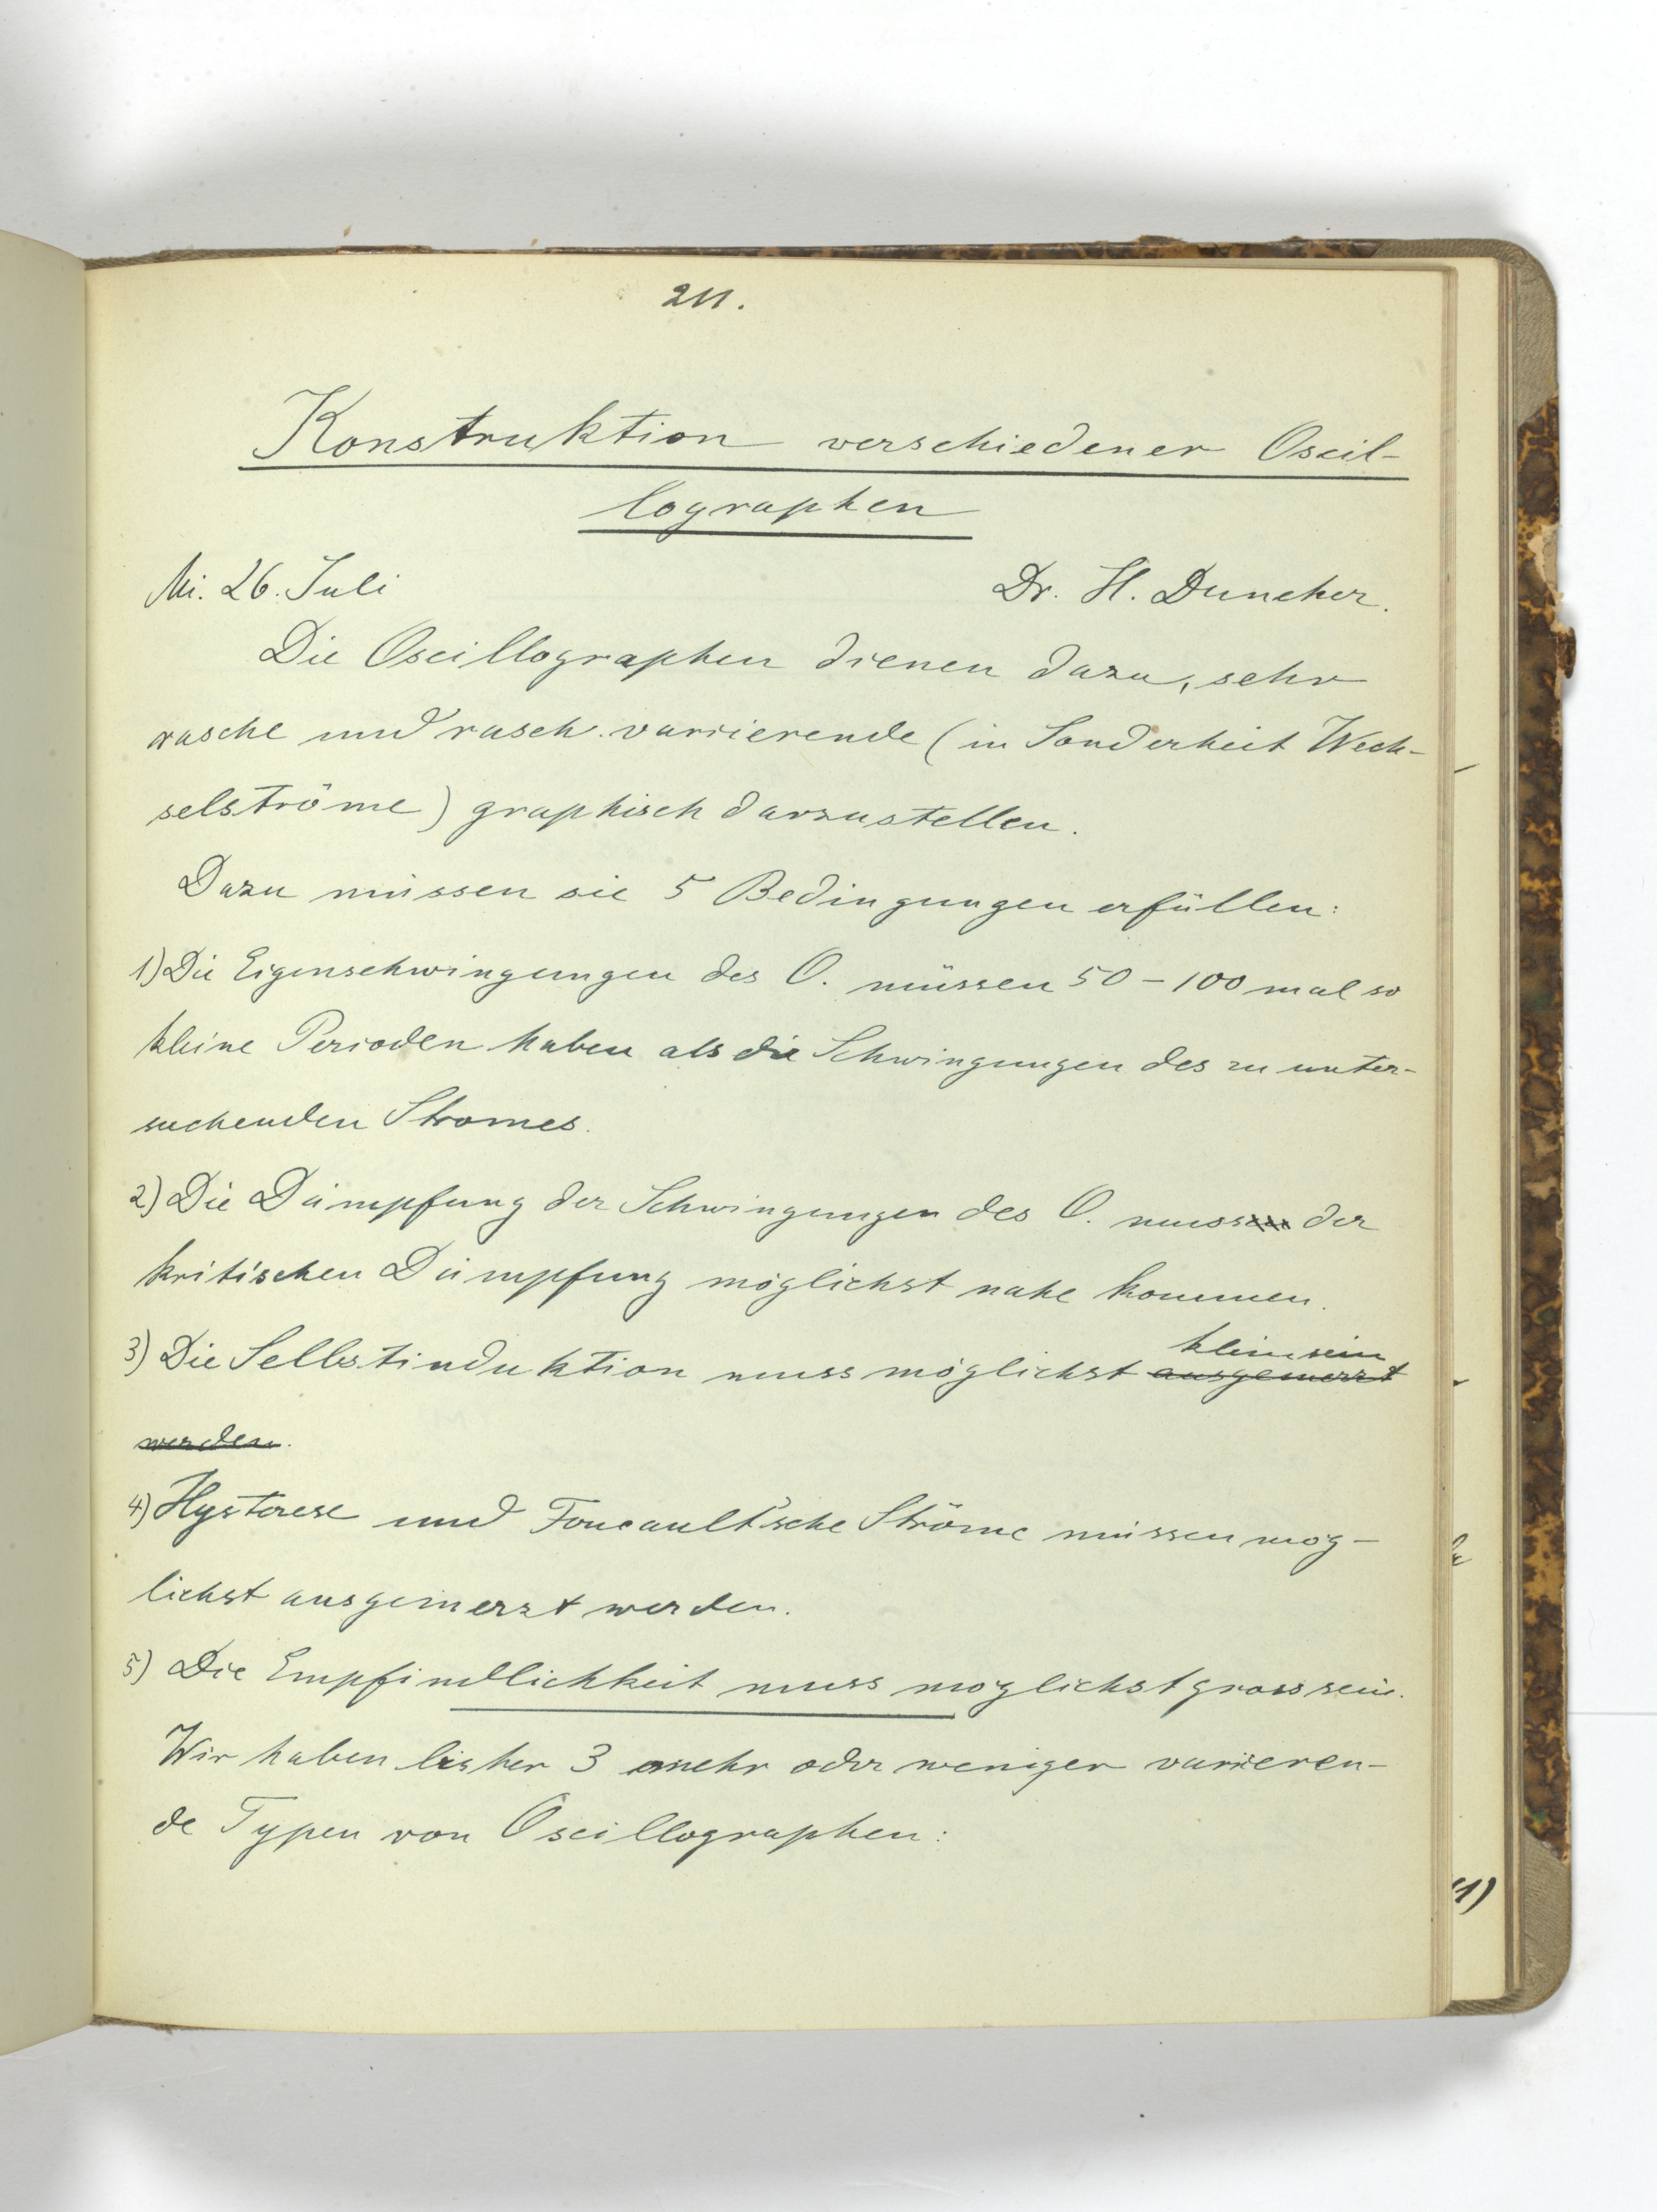 211.
Konstruktion verschiedener Oscil-
lographen
Mi. 26. Juli Dr. H. Duncker.
Die Oscillographen dienen dazu, sehr
rasche und rasch variierende (in Sonderheit Wech-
selströme) graphisch darzustellen.
Dazu müssen sie 5 Bedingungen erfüllen:
1) Die Eigenschwingungen des O. müssen 50 - 100 mal so
kleine Perioden haben als die Schwingungen des zu unter-
suchenden Stromes.
2) Die Dämpfung der Schwingungen des O. mussen der
kritischen Dämpfung möglichst nahe kommen.
klein sein
3) Die Selbstinduktion muss möglichst ausgemerzt
werden.
4) Hysterese und Foucault'sche Ströme müssen mög-
lichst ausgemerzt werden.
5) Die Empfindlichkeit muss möglichst gross sein.
Wir haben bisher 3 mehr oder weniger variieren-
de Typen von Oscillographen:
1)